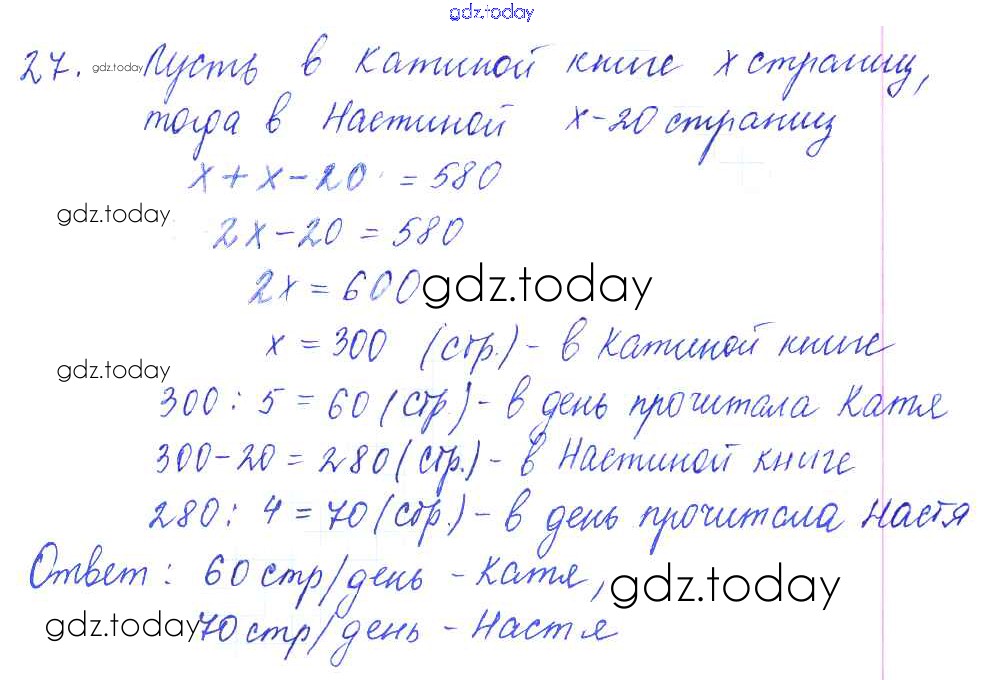 gdz.today
27. gdz.today Пусть в Катиной книге x страниц,
тогда в Настиной x-20 страниц
x + x - 20 = 580
gdz.today
2x - 20 = 580
2x = 600 gdz.today
x = 300 (стр.) - в Катиной книге
gdz.today
300 : 5 = 60 (стр.) - в день прочитала Катя
300 - 20 = 280 (стр.) - в Настиной книге
280 : 4 = 70 (стр.) - в день прочитала Настя
Ответ: 60 стр/день - Катя, gdz.today
gdz.today 70 стр/день - Настя